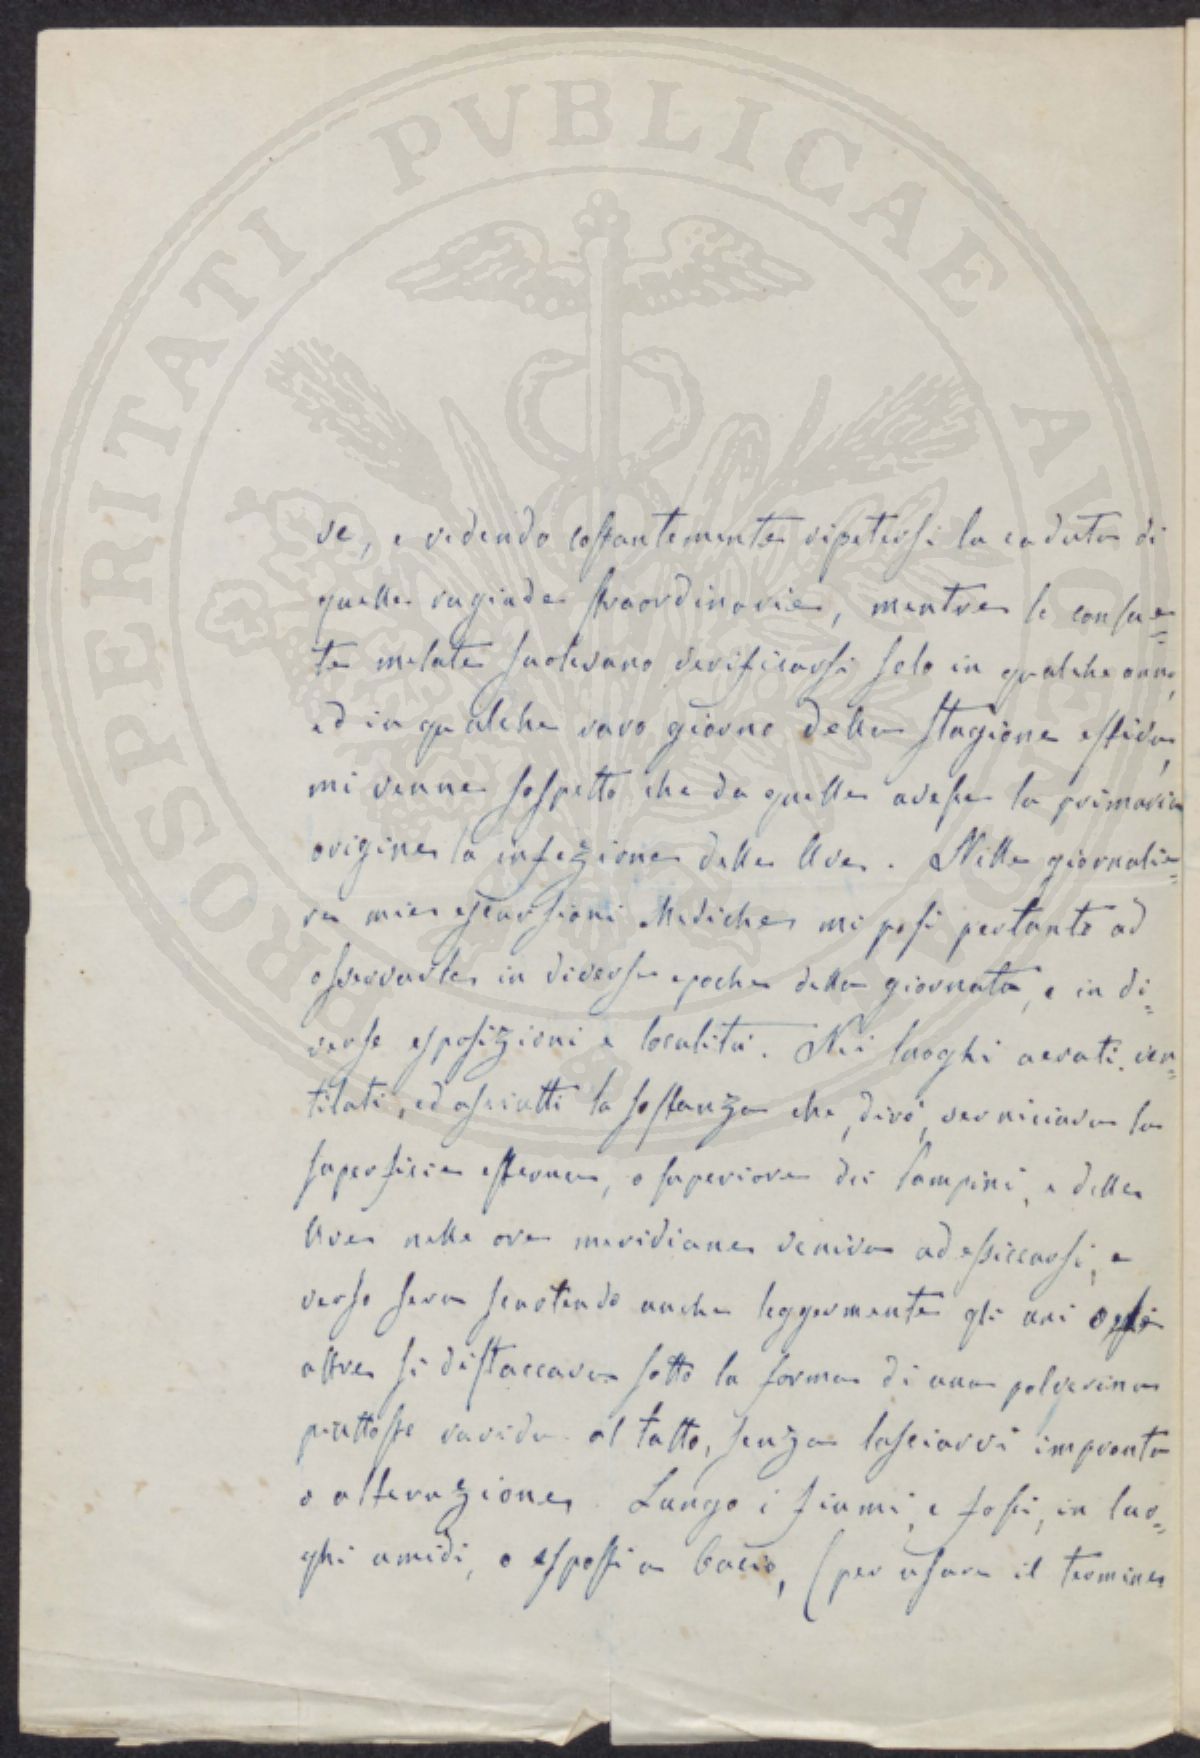 PROSPERITATI PVBLICAE AVGENDAE
ve, e vedendo costantemente ripetersi la caduta di
quelle rugiade straordinarie, mentre le consue=
te melate suolevano verificarsi solo in qualche anno,
ed in qualche raro giorno della stagione estiva,
mi venne sospetto che da quelle avesse la primaria
origine la infezione delle Uve. Nelle giornalie=
re mie escursioni Mediche mi posi pertanto ad
osservarle in diverse epoche della giornata, e in di=
verse esposizioni e località. Nei luoghi aerati, ven=
tilati, ed asciutti la sostanza che, dirò, verniciava la
superficie esterna, o superiore dei Pampini, e delle
Uve nelle ore meridiane veniva ad essiccarsi, e
verso sera scuotendo anche leggermente gli uni o gli
altre si distaccava sotto la forma di una polverina
piuttosto ruvida al tatto, senza lasciarvi impronta
o alterazione. Lungo i fiumi, e fossi, in luo=
ghi umidi, o esposti a bacio, (per usare il termine